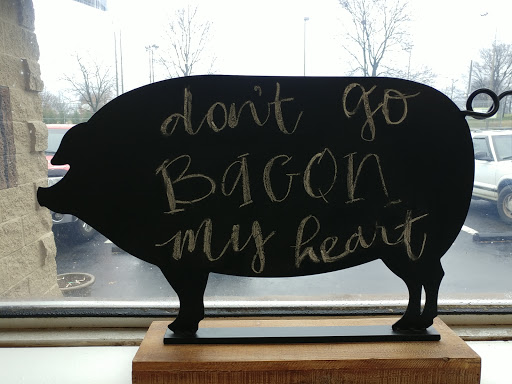 don't go
BaCON
my heart